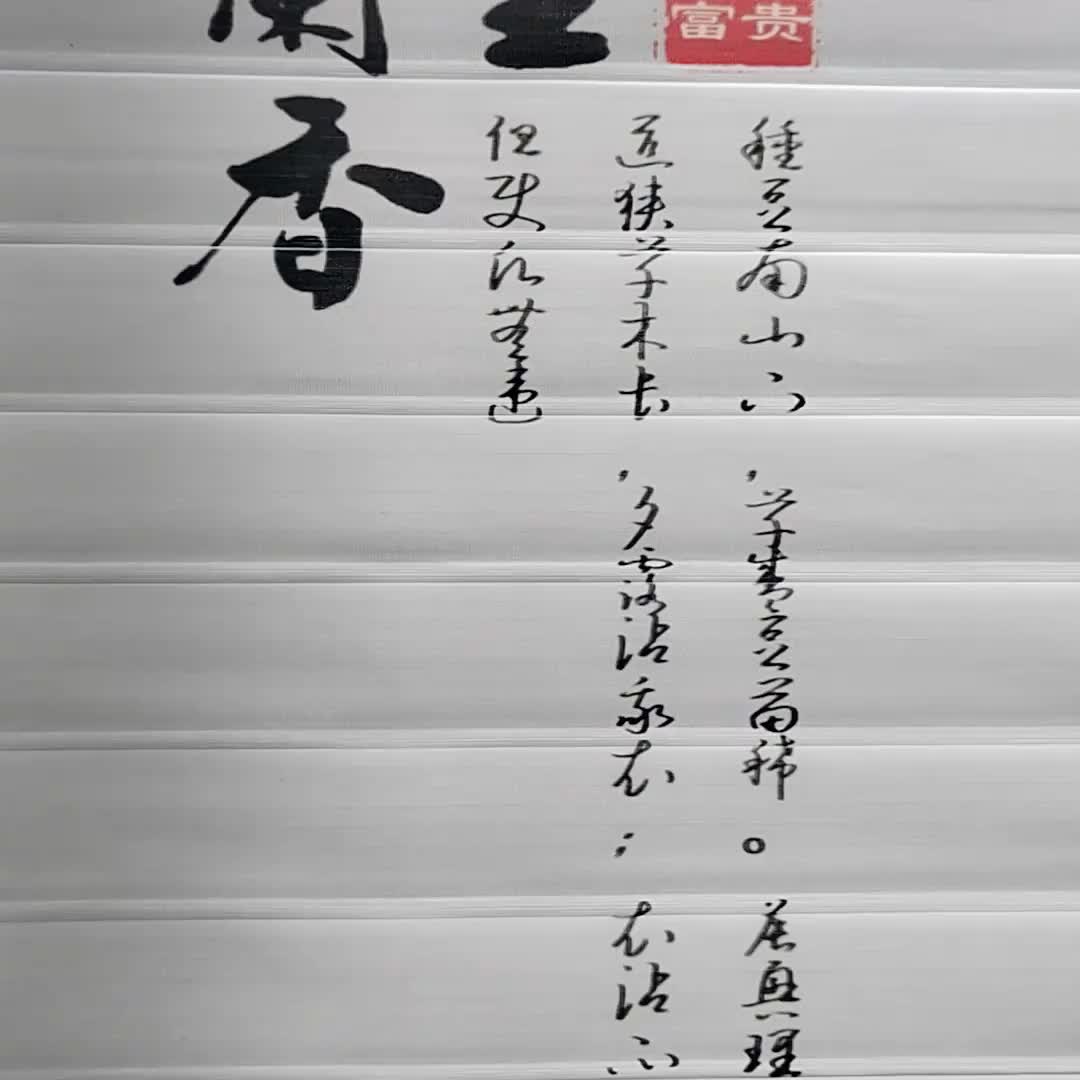 富贵
種豆南山下，草盛豆苗稀。晨興理
道狹草木長，夕露沾我衣；衣沾不
但使願無違
香